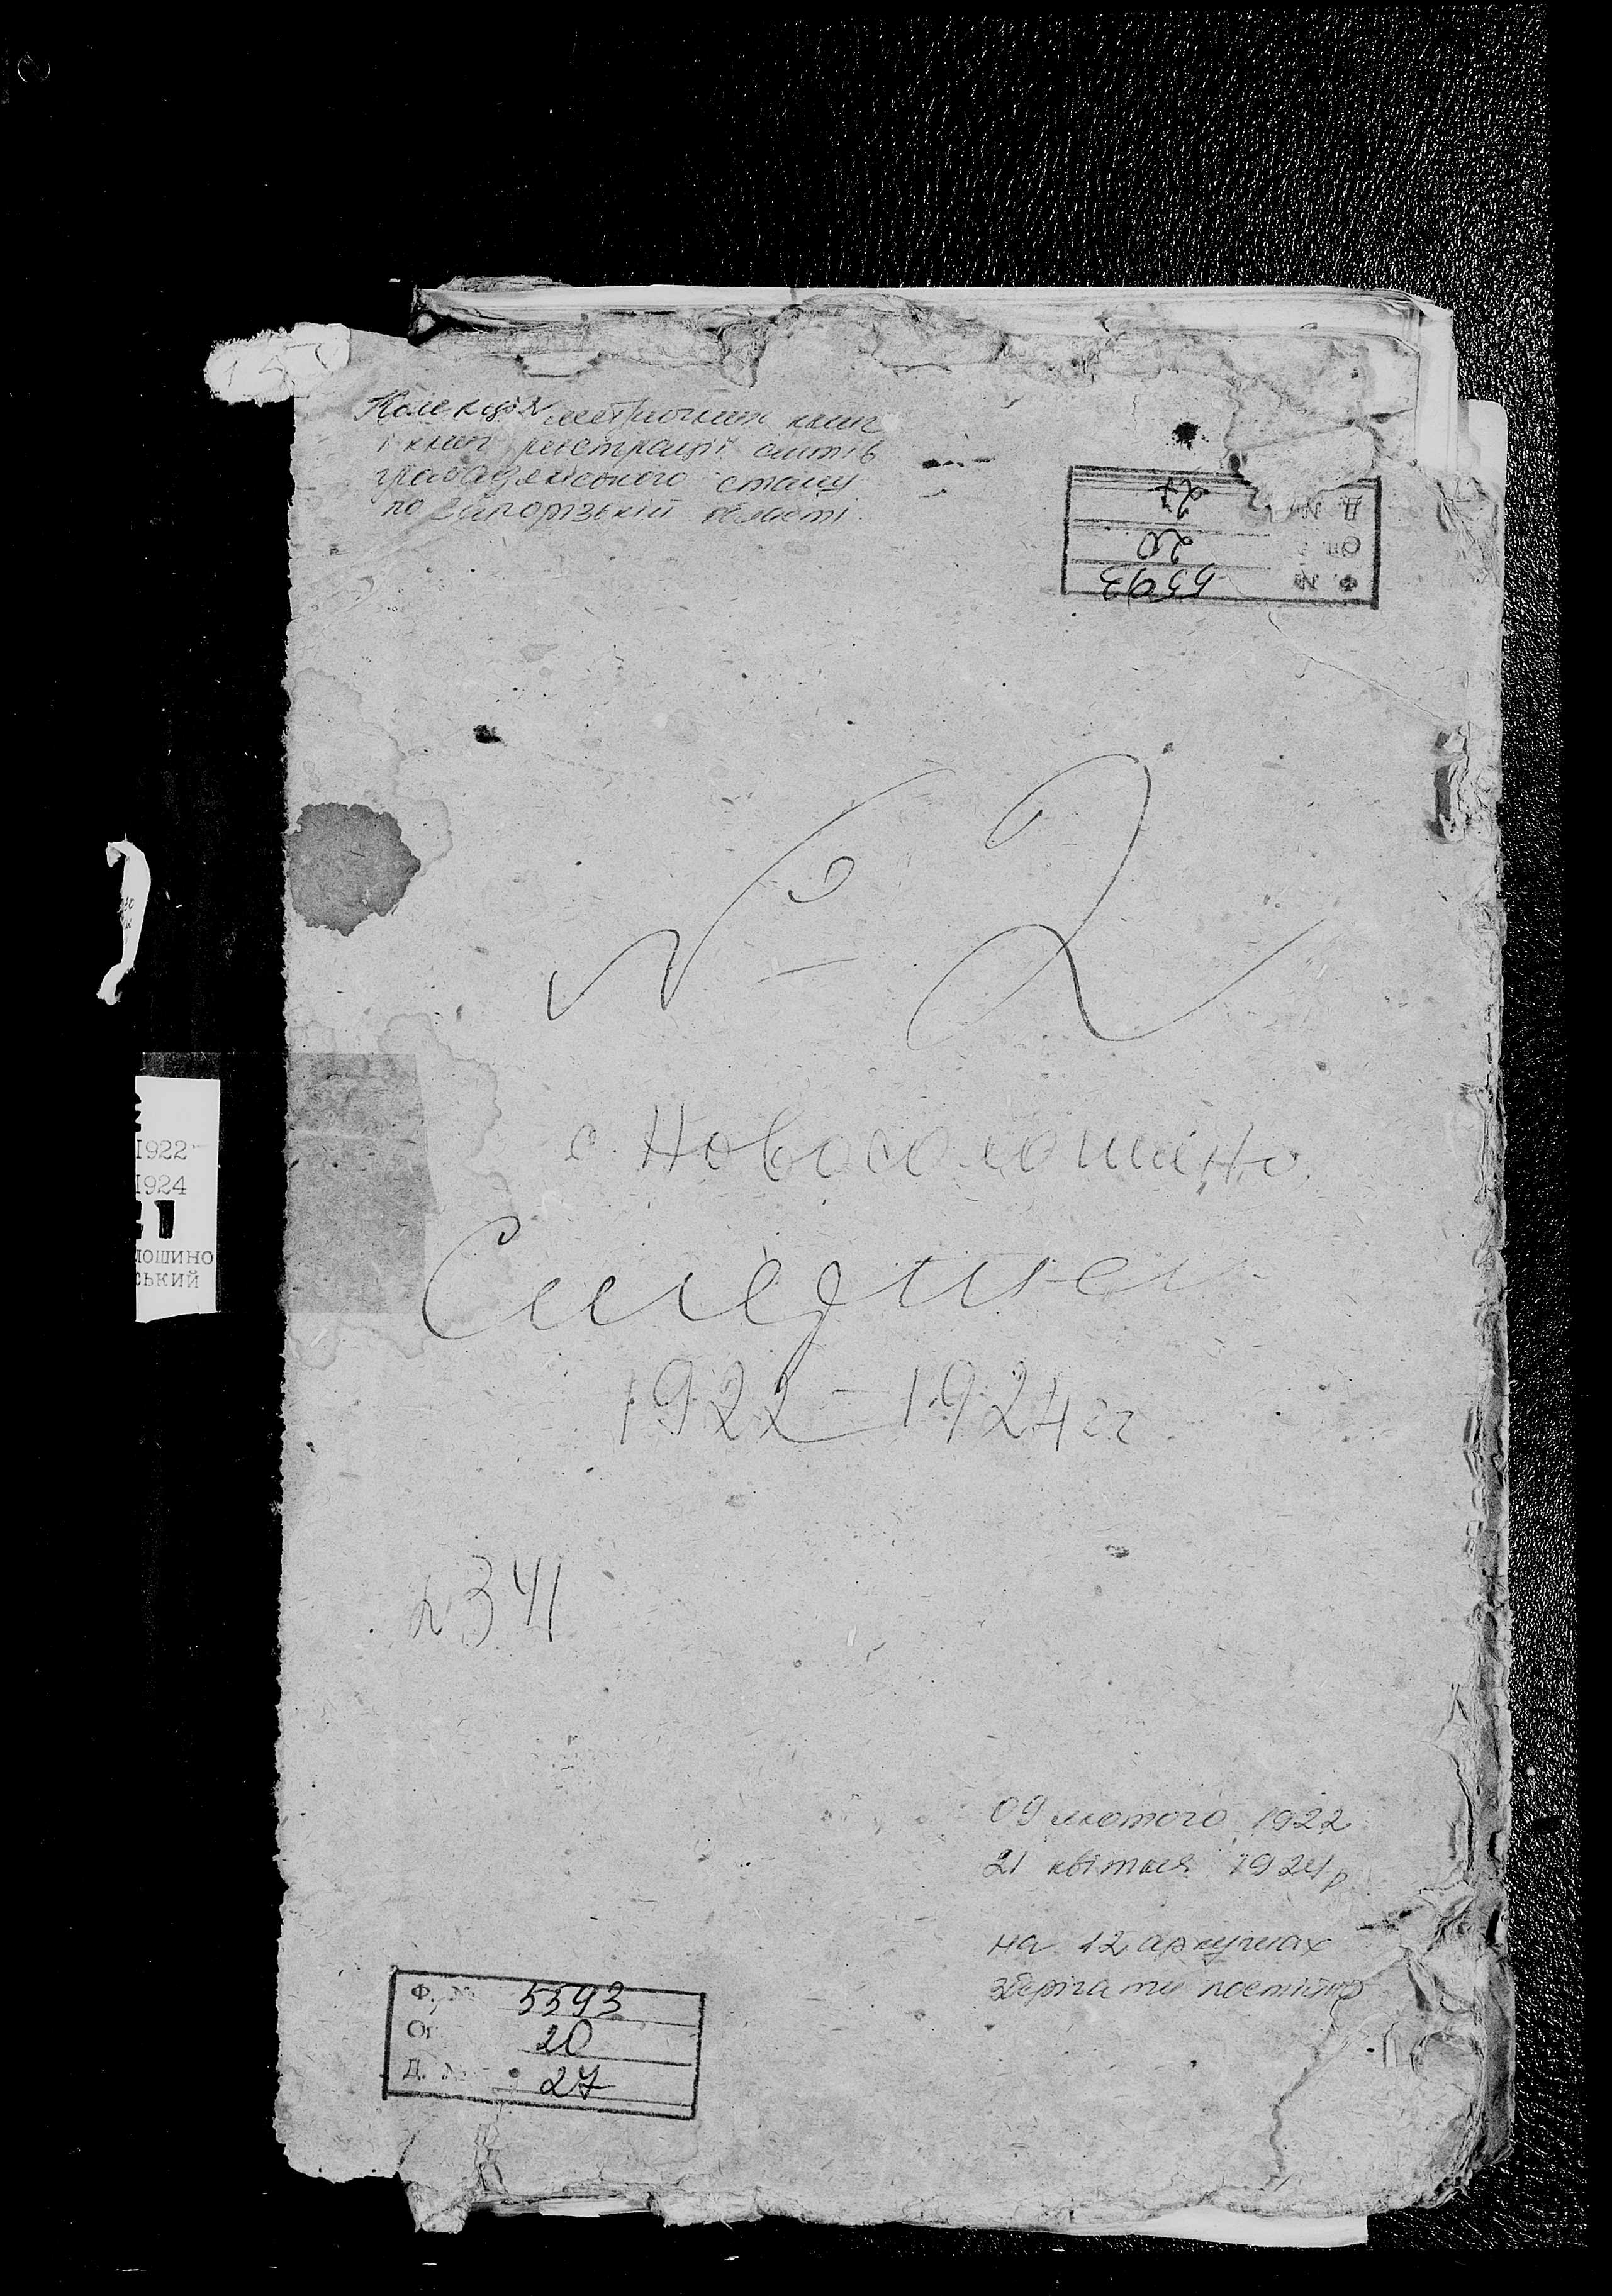 Колекція метричних книг
і книг реєстрації актів
громадянського стану
по Запорізькій області
Д. №
27
Оп.
20
Ф. №
5593
№ 2
с. Новосолошино
1922
1924
1
лошино
ський
1922 - 1924 гг
341
09 лютого 1922
21 квітня 1924 р
на 12 аркушах
зберігати постійно
Ф. № 5593
Оп. 20
Д. № 27